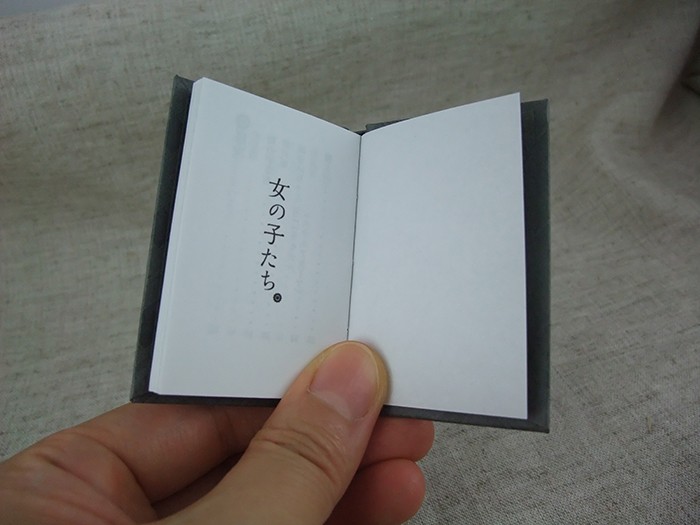 女の子たち。